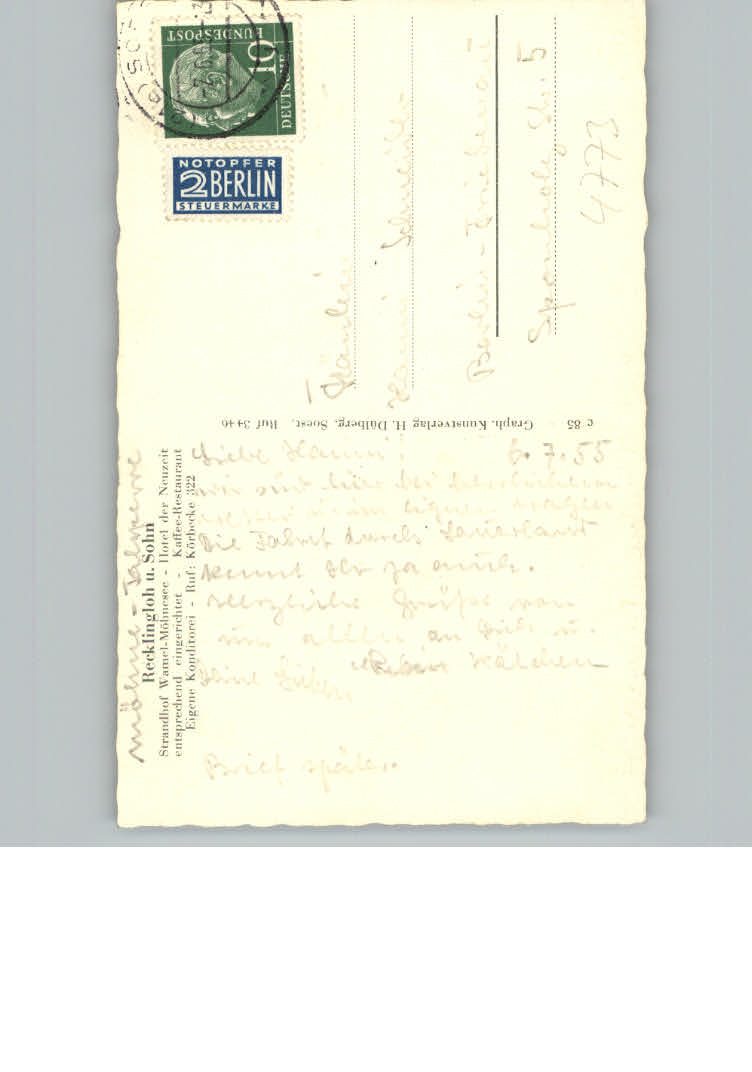 BUNDESPOST
10
DEUTSCHE
NOTOPFER
2 BERLIN
STEUERMARKE
Fräulein
Hanni Schneider
Berlin-Friedenau
Sponholz Str. 5
4773
c 85 Graph. Kunstverlag H. Dülberg, Soest, Ruf 3446
Möhne-Talsperre
Recklingloh u. Sohn
Strandhof Wamel-Möhnesee - Hotel der Neuzeit
entsprechend eingerichtet - Kaffee-Restaurant
Eigene Konditorei - Ruf: Körbecke 322
6.7.55
Liebe Hanni!
wir sind hier bei
Die Fahrt durchs Sauerland
kennt Ihr ja auch.
Herzliche Grüße von
uns allen an Dich u.
Deine Käthchen
Brief später.